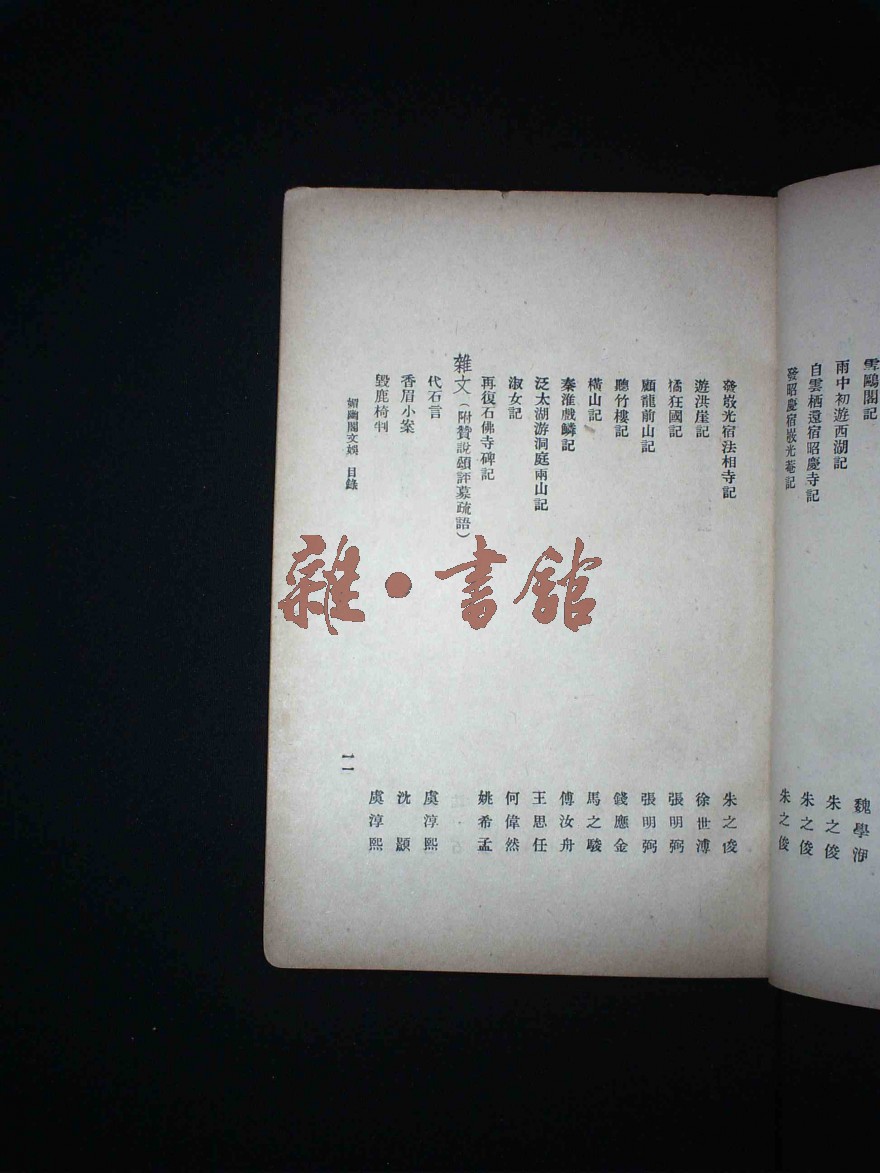 雪鷗閣記 魏學洢
雨中初遊西湖記 朱之俊
自雲栖還宿昭慶寺記 朱之俊
發昭慶宿嵌光菴記 朱之俊
發嵌光宿法相寺記 朱之俊
遊洪崖記 徐世溥
橘狂國記 張明弼
顧龍前山記 張明弼
聽竹樓記 錢應金
橫山記 馬之駿
秦淮戲鱗記 傅汝舟
泛太湖游洞庭兩山記 王思任
淑女記 何偉然
再復石佛寺碑記 姚希孟
雜文（附贊說頌評募疏語）
代石言 虞淳熙
香眉小案 沈顥
毀鹿椅判 虞淳熙
媚幽閣文娛 目錄 一一
雜·書館